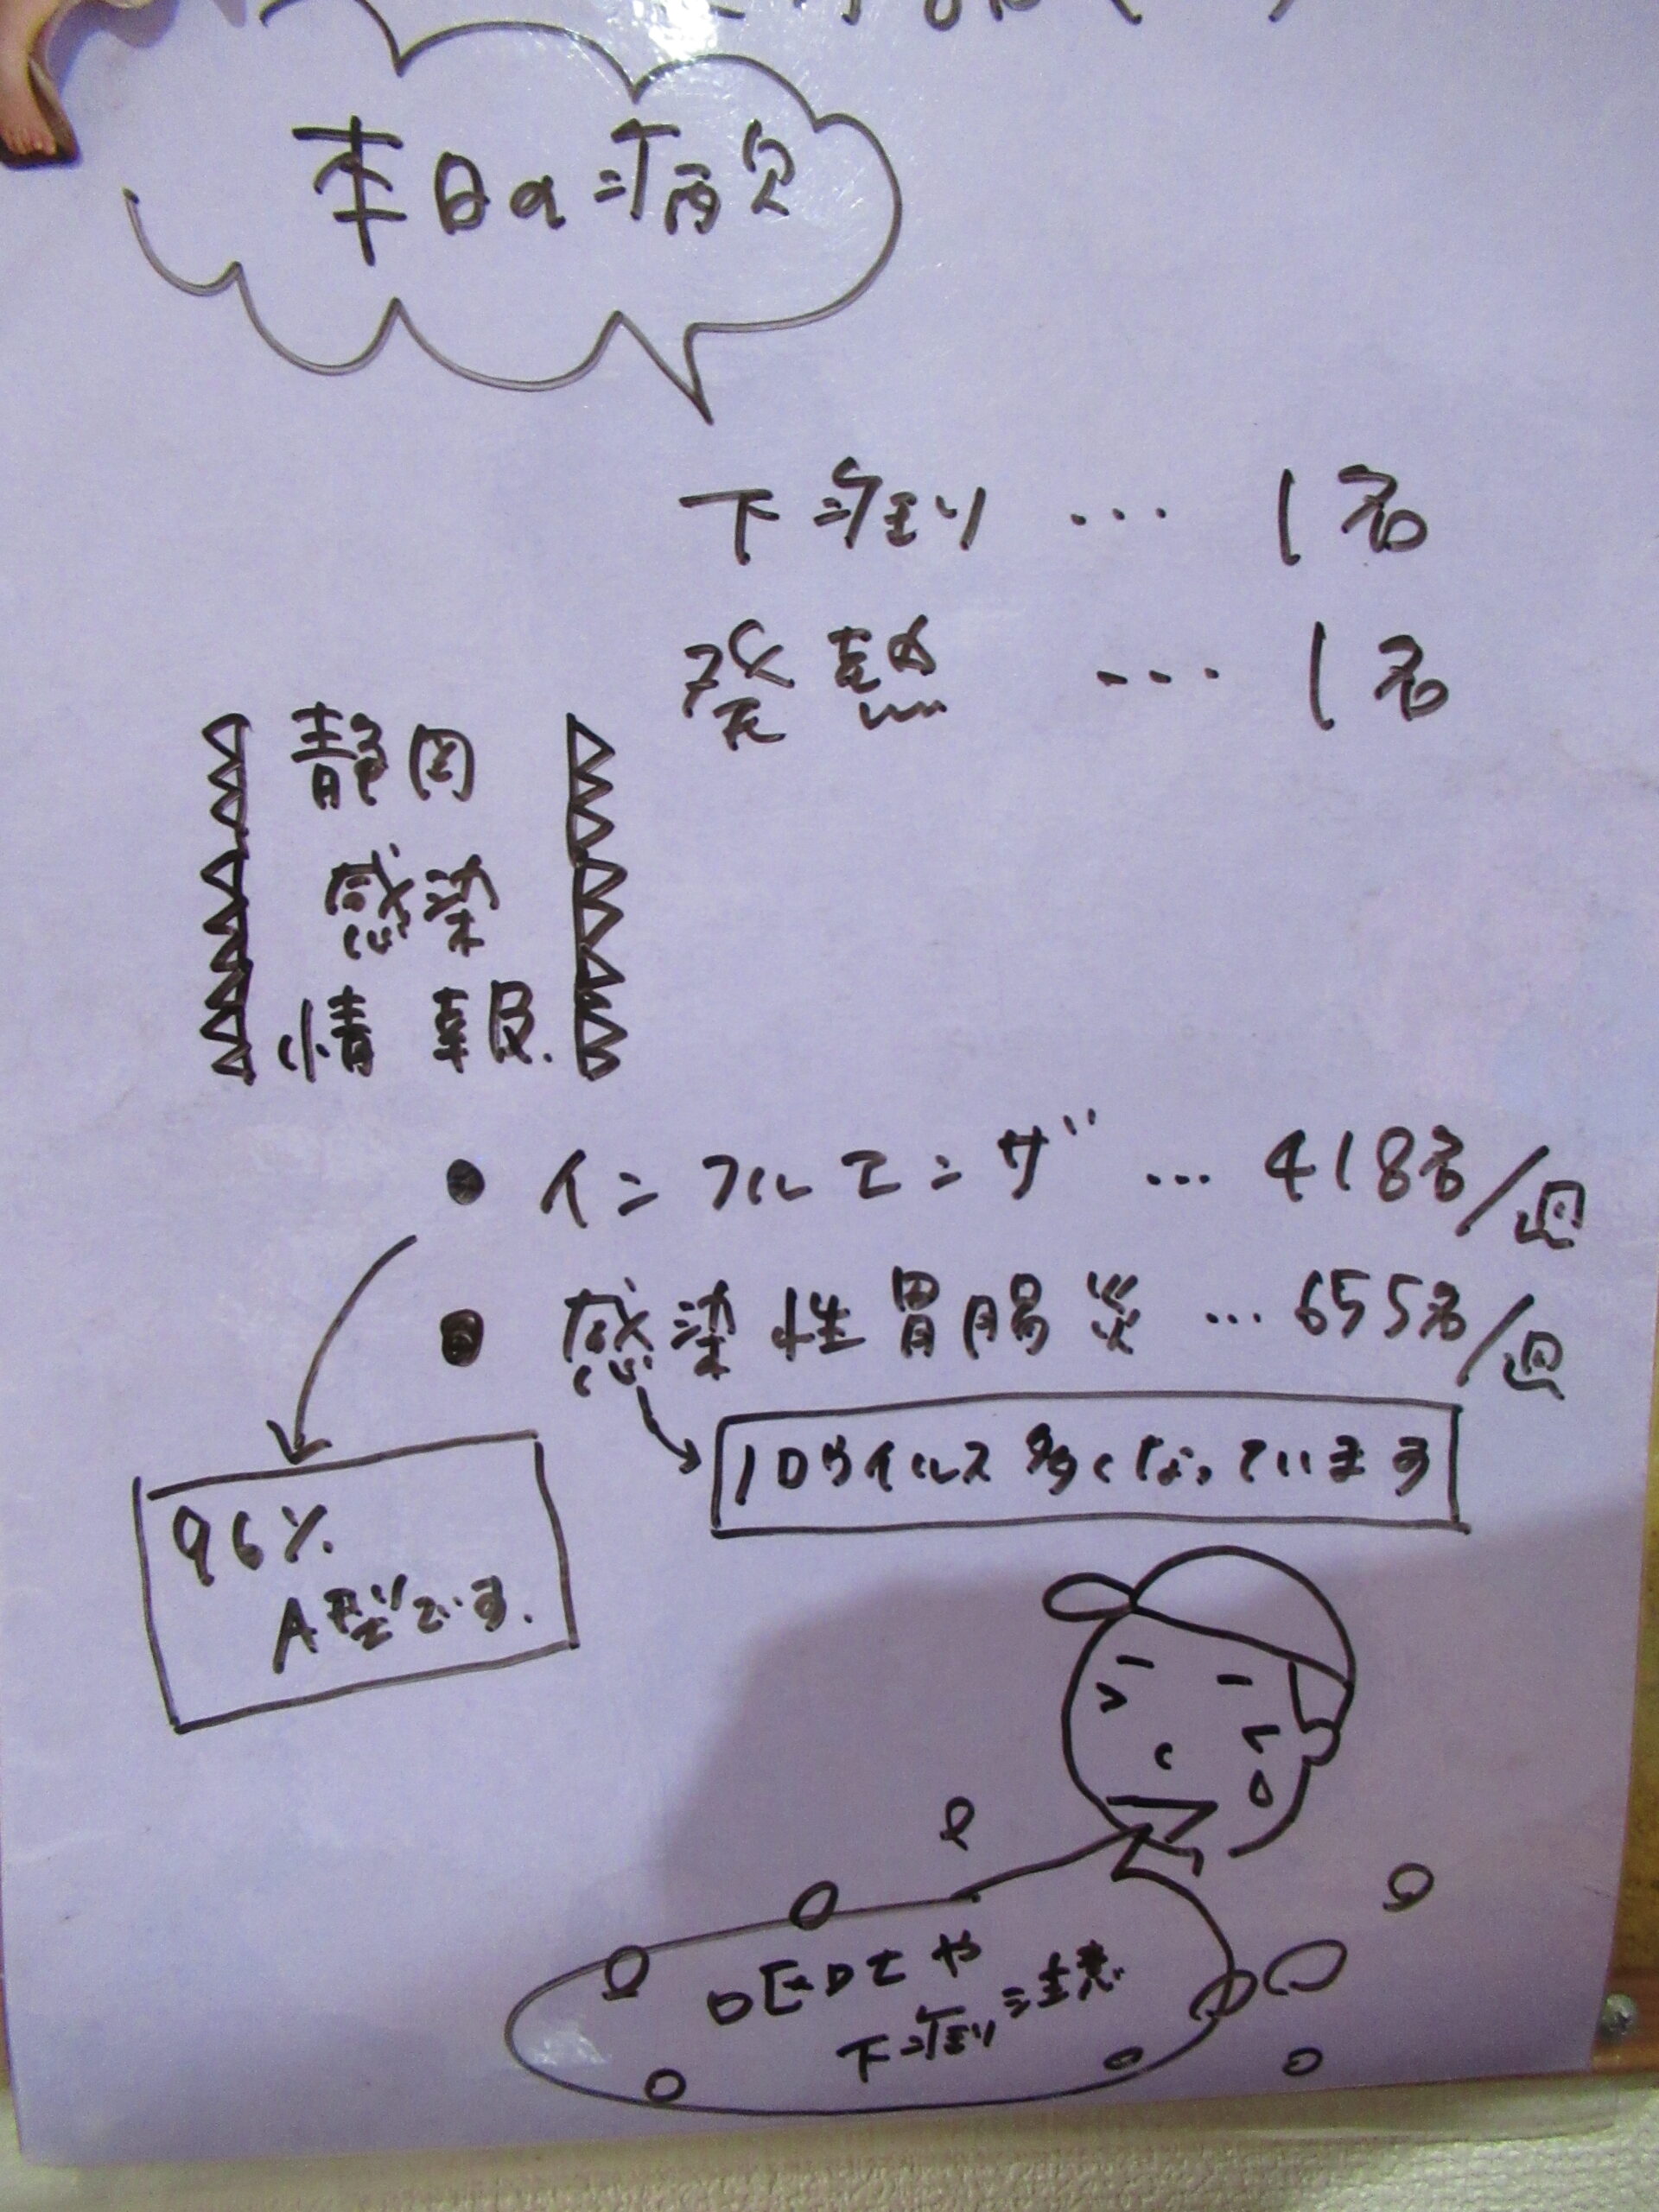 本日の病欠
下痢り … 1名
発熱 … 1名
静岡
感染
情報.
● インフルエンザ … 418名/週
● 感染性胃腸炎 … 655名/週
ノロウイルス多くなっています
96%
A型です.
嘔吐や
下痢り注意